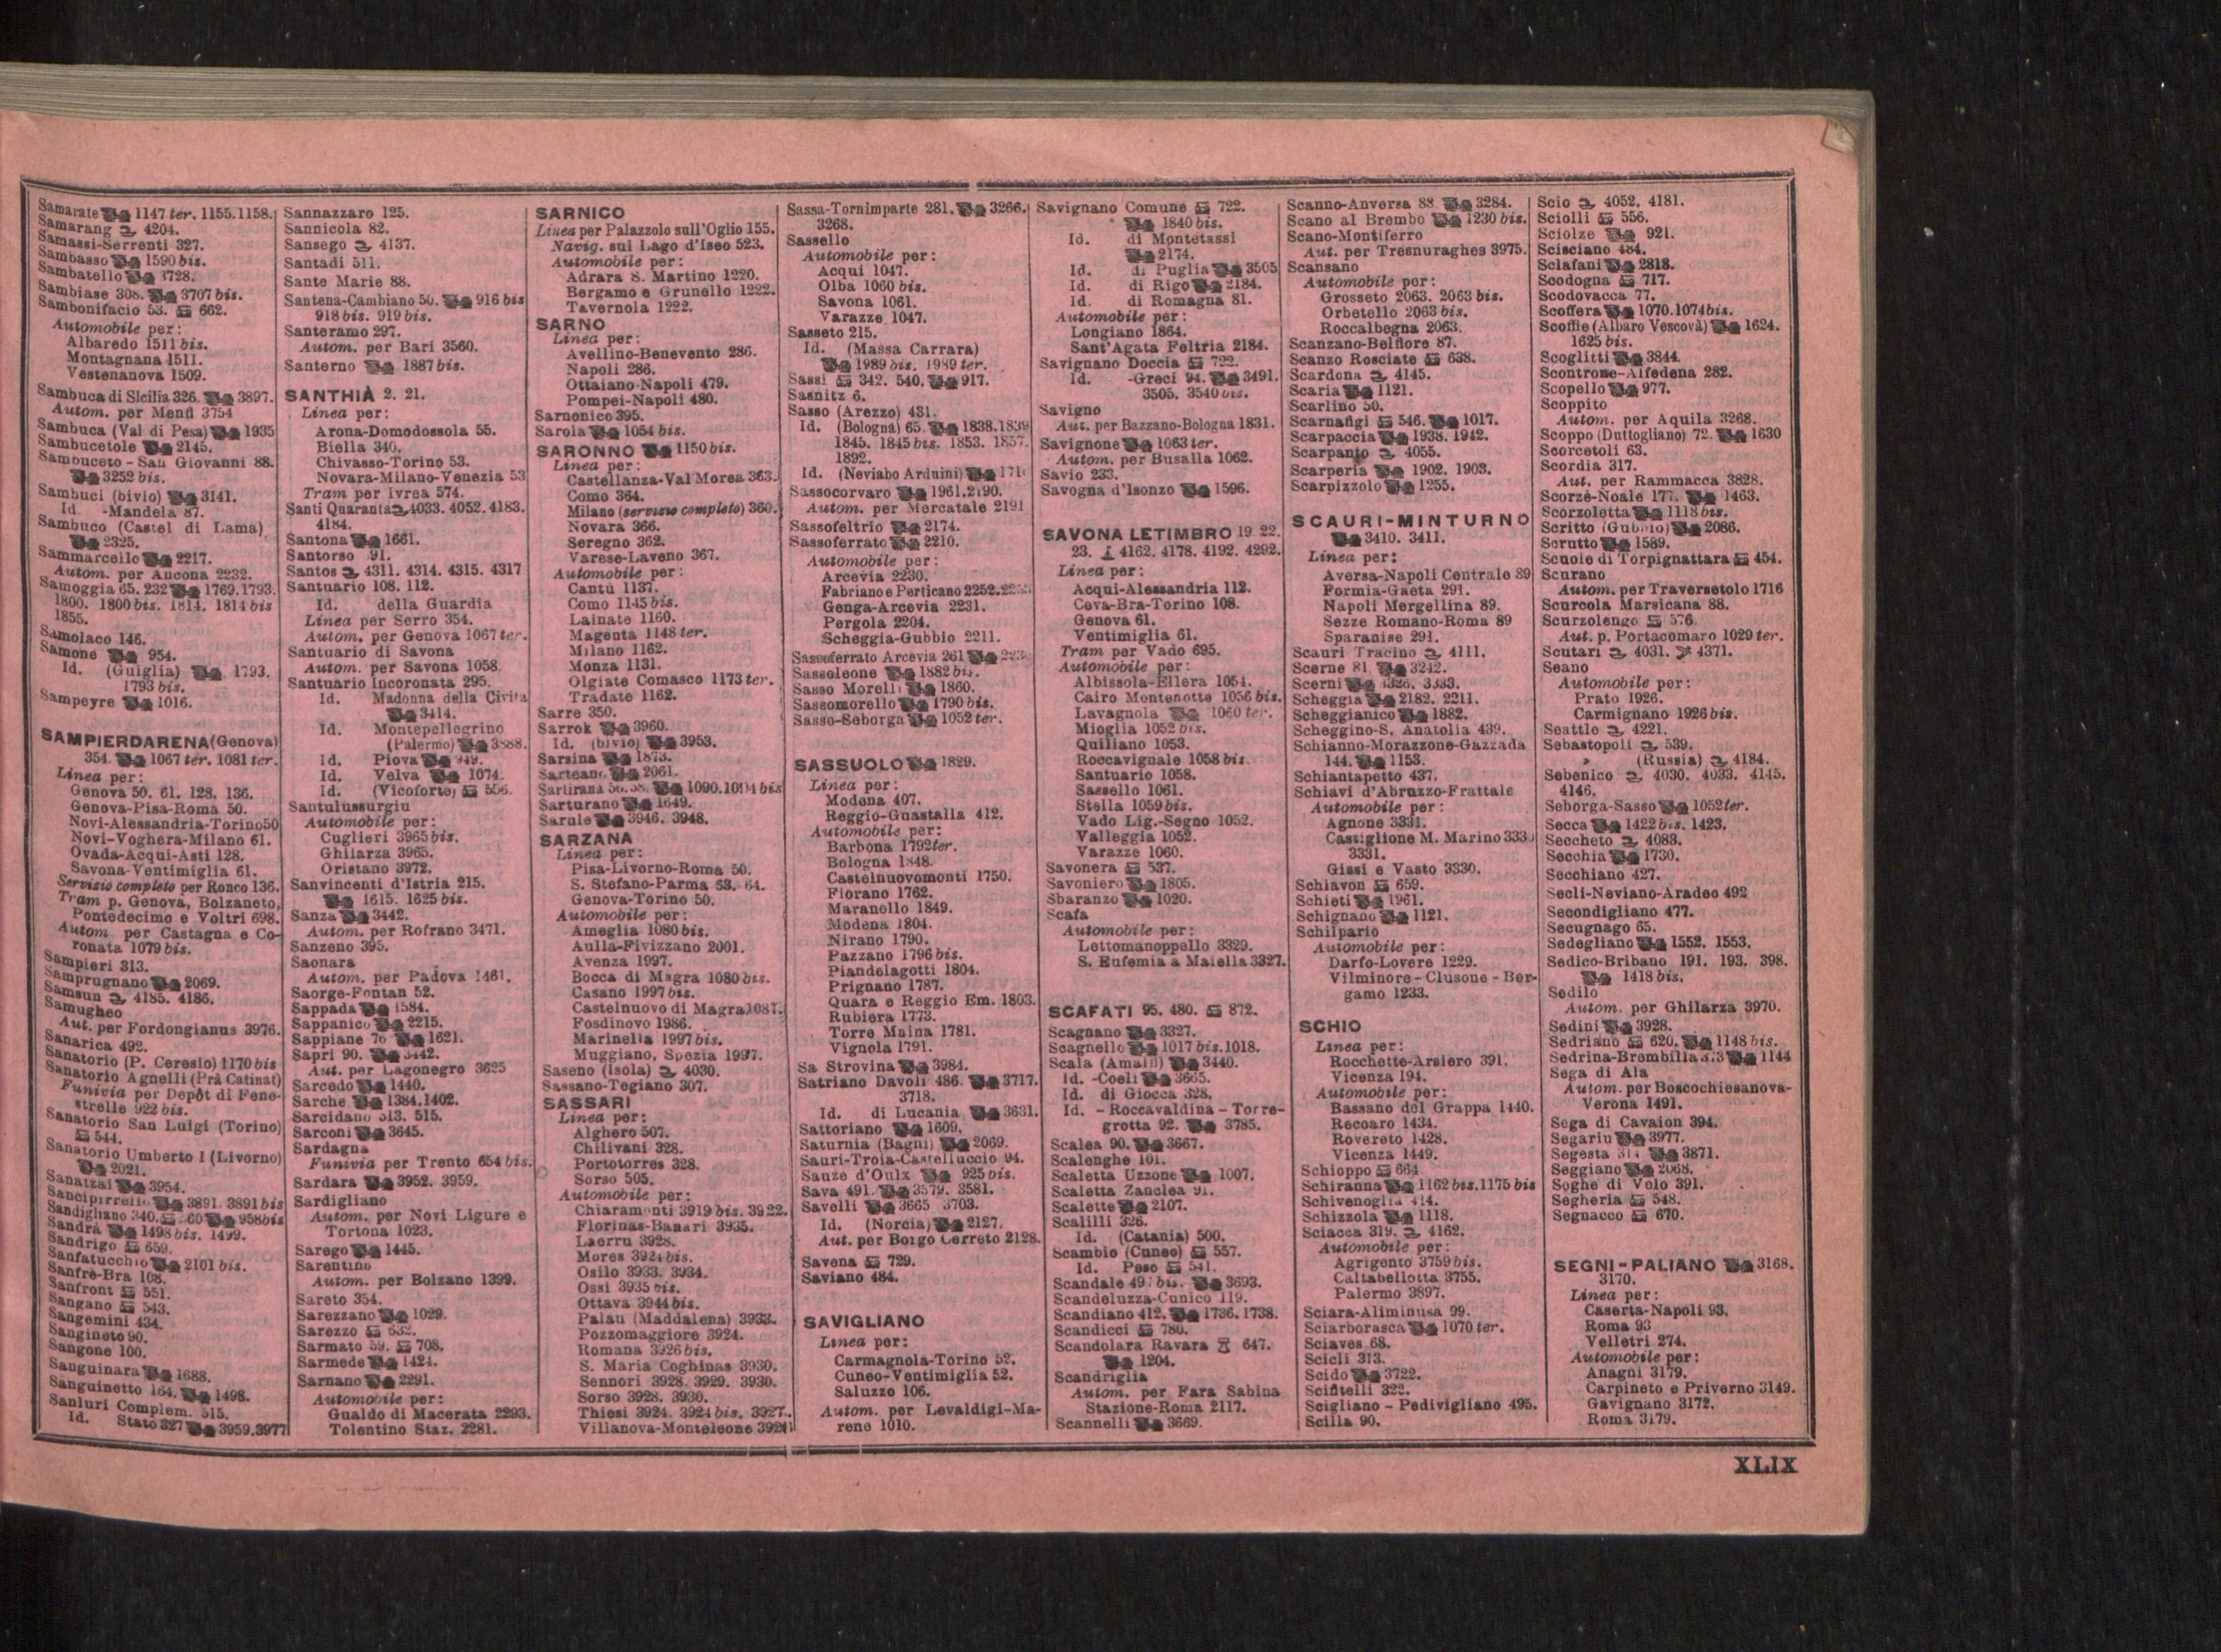 Samarate 1147 ter. 1155.1158.
Samarang 4204.
Samassi-Serrenti 327.
Sambasso 1590 bis.
Sambatello 3728.
Sambiase 308. 3707 bis.
Sambonifacio 53. 662.
Automobile per:
Albaredo 1511 bis.
Montagnana 1511.
Vestenanova 1509.
Sambuca di Sicilia 326. 3897.
Autom. per Menfi 3754
Sambuca (Val di Pesa) 1935
Sambucetole 2145.
Sambuceto - San Giovanni 88.
3252 bis.
Sambuci (bivio) 3141.
Id. -Mandela 87.
Sambuco (Castel di Lama)
2325.
Sammarcello 2217.
Autom. per Ancona 2232.
Samoggia 65. 232 1769.1793.
1800. 1800 bis. 1814. 1814 bis
1855.
Samolaco 146.
Samone 954.
Id. (Guiglia) 1793.
1793 bis.
Sampeyre 1016.
SAMPIERDARENA (Genova)
354. 1067 ter. 1081 ter.
Linea per:
Genova 50. 61. 128. 136.
Genova-Pisa-Roma 50.
Novi-Alessandria-Torino 50
Novi-Voghera-Milano 61.
Ovada-Acqui-Asti 128.
Savona-Ventimiglia 61.
Servizio completo per Ronco 136.
Tram p. Genova, Bolzaneto,
Pontedecimo e Voltri 698.
Autom. per Castagna e Co-
ronata 1079 bis.
Sampieri 313.
Samprugnano 2069.
Samsun 4185. 4186.
Samugheo
Aut. per Fordongianus 3976.
Sanarica 492.
Sanatorio (P. Ceresio) 1170 bis
Sanatorio Agnelli (Prà Catinat)
Funivia per Depôt di Fene-
strelle 922 bis.
Sanatorio San Luigi (Torino)
544.
Sanatorio Umberto I (Livorno)
2021.
Sanatzai 3954.
Sancipirrello 3891. 3891 bis
Sandigliano 340. 958 bis
Sandrà 1498 bis. 1499.
Sandrigo 659.
Sanfatucchio 2101 bis.
Sanfrè-Bra 108.
Sanfront 551.
Sangano 543.
Sangemini 434.
Sangineto 90.
Sangone 100.
Sanguinara 1688.
Sanguinetto 164. 1498.
Sanluri Complem. 515.
Id. Stato 327 3959.3977
Sannazzaro 125.
Sannicola 82.
Sansego 4137.
Santadi 511.
Sante Marie 88.
Santena-Cambiano 50. 916 bis
918 bis. 919 bis.
Santeramo 297.
Autom. per Bari 3560.
Santerno 1887 bis.
SANTHIÀ 2. 21.
Linea per:
Arona-Domodossola 55.
Biella 340.
Chivasso-Torino 53.
Novara-Milano-Venezia 53
Tram per Ivrea 574.
Santi Quaranta 4033. 4052. 4183.
4184.
Santona 1661.
Santorso 91.
Santos 4311. 4314. 4315. 4317
Santuario 108. 112.
Id. della Guardia
Linea per Serro 354.
Autom. per Genova 1067 ter.
Santuario di Savona
Autom. per Savona 1058.
Santuario Incoronata 295.
Id. Madonna della Civita
3414.
Id. Montepellegrino
(Palermo) 3888.
Id. Piova 949.
Id. Velva 1074.
Id. (Vicoforte) 556.
Santulussurgiu
Automobile per:
Cuglieri 3965 bis.
Ghilarza 3965.
Oristano 3972.
Sanvincenti d'Istria 215.
1615. 1625 bis.
Sanza 3442.
Autom. per Rofrano 3471.
Sanzeno 395.
Saonara
Autom. per Padova 1461.
Saorge-Fontan 52.
Sappada 1584.
Sappanico 2215.
Sappiane 76 1621.
Sapri 90. 3442.
Aut. per Lagonegro 3625
Sarcedo 1440.
Sarche 1384.1402.
Sarcidano 513. 515.
Sarconi 3645.
Sardagna
Funivia per Trento 654 bis.
Sardara 3952. 3959.
Sardigliano
Autom. per Novi Ligure e
Tortona 1023.
Sarego 1445.
Sarentino
Autom. per Bolzano 1399.
Sareto 354.
Sarezzano 1029.
Sarezzo 632.
Sarmato 59. 708.
Sarmede 1424.
Sarnano 2291.
Automobile per:
Gualdo di Macerata 2293.
Tolentino Staz. 2281.
SARNICO
Linea per Palazzolo sull'Oglio 155.
Navig. sul Lago d'Iseo 523.
Automobile per:
Adrara S. Martino 1220.
Bergamo e Grunello 1222.
Tavernola 1222.
SARNO
Linea per:
Avellino-Benevento 286.
Napoli 286.
Ottaiano-Napoli 479.
Pompei-Napoli 480.
Sarnonico 395.
Sarola 1054 bis.
SARONNO 1150 bis.
Linea per:
Castellanza-Val Morea 363.
Como 364.
Milano (servizio completo) 360.
Novara 366.
Seregno 362.
Varese-Laveno 367.
Automobile per:
Cantù 1137.
Como 1145 bis.
Lainate 1160.
Magenta 1148 ter.
Milano 1162.
Monza 1131.
Olgiate Comasco 1173 ter.
Tradate 1162.
Sarre 350.
Sarrok 3960.
Id. (bivio) 3953.
Sarsina 1873.
Sarteano 2061.
Sartirana 1090.1094 bis
Sarturano 1649.
Sarule 3946. 3948.
SARZANA
Linea per:
Pisa-Livorno-Roma 50.
S. Stefano-Parma 63. 64.
Genova-Torino 50.
Automobile per:
Ameglia 1080 bis.
Aulla-Fivizzano 2001.
Avenza 1997.
Bocca di Magra 1080 bis.
Casano 1997 bis.
Castelnuovo di Magra 1087.
Fosdinovo 1986.
Marinella 1997 bis.
Muggiano, Spezia 1997.
Saseno (Isola) 4030.
Sassano-Tegiano 307.
SASSARI
Linea per:
Alghero 507.
Chilivani 328.
Portotorres 328.
Sorso 505.
Automobile per:
Chiaramonti 3919 bis. 3922.
Florinas-Banari 3935.
Laerru 3928.
Mores 3924 bis.
Osilo 3933. 3934.
Ossi 3935 bis.
Ottava 3944 bis.
Palau (Maddalena) 3933.
Pozzomaggiore 3924.
Romana 3926 bis.
S. Maria Coghinas 3930.
Sennori 3928. 3929. 3930.
Sorso 3928. 3930.
Thiesi 3924. 3924 bis. 3927.
Villanova-Monteleone
Sassa-Tornimparte 281. 3266.
3268.
Sassello
Automobile per:
Acqui 1047.
Olba 1060 bis.
Savona 1061.
Varazze 1047.
Sasseto 215.
Id. (Massa Carrara)
1989 bis. 1989 ter.
Sassi 342. 540. 917.
Sasnitz 6.
Sasso (Arezzo) 431.
Id. (Bologna) 65. 1838.1839
1845. 1845 bis. 1853. 1857.
1892.
Id. (Neviabo Arduini)
Sassocorvaro 1961.2190.
Autom. per Mercatale 2191
Sassofeltrio 2174.
Sassoferrato 2210.
Automobile per:
Arcevia 2230.
Fabriano e Perticano 2252.
Genga-Arcevia 2231.
Pergola 2204.
Scheggia-Gubbio 2211.
Sassoferrato Arcevia 261
Sassoleone 1882 bis.
Sasso Morelli 1860.
Sassomorello 1790 bis.
Sasso-Seborga 1052 ter.
SASSUOLO 1829.
Linea per:
Modena 407.
Reggio-Guastalla 412.
Automobile per:
Barbona 1792 ter.
Bologna 1848.
Castelnuovomonti 1750.
Fiorano 1762.
Maranello 1849.
Modena 1804.
Nirano 1790.
Pazzano 1796 bis.
Piandelagotti 1804.
Prignano 1787.
Quara e Reggio Em. 1803.
Rubiera 1773.
Torre Maina 1781.
Vignola 1791.
Sa Strovina 3984.
Satriano Davoli 486. 3717.
3718.
Id. di Lucania 3631.
Sattoriano 1609.
Saturnia (Bagni) 2069.
Sauri-Troia-Castelluccio 94.
Sauze d'Oulx 925 bis.
Sava 491. 3579. 3581.
Savelli 3665 3703.
Id. (Norcia) 2127.
Aut. per Borgo Cerreto 2128.
Savena 729.
Saviano 484.
SAVIGLIANO
Linea per:
Carmagnola-Torino 52.
Cuneo-Ventimiglia 52.
Saluzzo 106.
Autom. per Levaldigi-Ma-
rene 1010.
Savignano Comune 722.
1840 bis.
Id. di Montetassi
2174.
Id. di Puglia 3505
Id. di Rigo 2184.
Id. di Romagna 81.
Automobile per:
Longiano 1864.
Sant'Agata Feltria 2184.
Savignano Doccia 722.
Id. -Greci 94. 3491.
3505. 3540 bis.
Savigno
Aut. per Bazzano-Bologna 1831.
Savignone 1063 ter.
Autom. per Busalla 1062.
Savio 233.
Savogna d'Isonzo 1596.
SAVONA LETIMBRO 19. 22.
23. 4162. 4178. 4192. 4292.
Linea per:
Acqui-Alessandria 112.
Ceva-Bra-Torino 108.
Genova 61.
Ventimiglia 61.
Tram per Vado 695.
Automobile per:
Albissola-Ellera 1054.
Cairo Montenotte 1056 bis.
Lavagnola 1060 ter.
Mioglia 1052 bis.
Quiliano 1053.
Roccavignale 1058 bis.
Santuario 1058.
Sassello 1061.
Stella 1059 bis.
Vado Lig.-Segno 1052.
Valleggia 1052.
Varazze 1060.
Savonera 537.
Savoniero 1805.
Sbaranzo 1020.
Scafa
Automobile per:
Lettomanoppello 3329.
S. Eufemia a Maiella 3327.
SCAFATI 95. 480. 872.
Scagnano 3327.
Scagnello 1017 bis.1018.
Scala (Amalfi) 3440.
Id. -Coeli 3665.
Id. di Giocca 328.
Id. - Roccavaldina - Torre-
grotta 92. 3785.
Scalea 90. 3667.
Scalenghe 101.
Scaletta Uzzone 1007.
Scaletta Zanclea 91.
Scalette 2107.
Scalilli 326.
Id. (Catania) 500.
Scambio (Cuneo) 557.
Id. Peso 541.
Scandale 497 bis. 3693.
Scandeluzza-Cunico 119.
Scandiano 412. 1736. 1738.
Scandicci 780.
Scandolara Ravara 647.
1204.
Scandriglia
Autom. per Fara Sabina
Stazione-Roma 2117.
Scannelli 3669.
Scanno-Anversa 88. 3284.
Scano al Brembo 1230 bis.
Scano-Montiferro
Aut. per Tresnuraghes 3975.
Scansano
Automobile per:
Grosseto 2063. 2063 bis.
Orbetello 2063 bis.
Roccalbegna 2063.
Scanzano-Belfiore 87.
Scanzo Rosciate 638.
Scardona 4145.
Scaria 1121.
Scarlino 50.
Scarnafigi 546. 1017.
Scarpaccia 1938. 1942.
Scarpanto 4055.
Scarperia 1902. 1903.
Scarpizzolo 1255.
SCAURI-MINTURNO
3410. 3411.
Linea per:
Aversa-Napoli Centrale 89
Formia-Gaeta 291.
Napoli Mergellina 89.
Sezze Romano-Roma 89
Sparanise 291.
Scauri Tracino 4111.
Scerne 81. 3242.
Scerni 3326. 3333.
Scheggia 2182. 2211.
Scheggianico 1882.
Scheggino-S. Anatolia 439.
Schianno-Morazzone-Gazzada
144. 1153.
Schiantapetto 437.
Schiavi d'Abruzzo-Frattale
Automobile per:
Agnone 3331.
Castiglione M. Marino
3331.
Gissi e Vasto 3330.
Schiavon 659.
Schieti 1961.
Schignano 1121.
Schilpario
Automobile per:
Darfo-Lovere 1229.
Vilminore - Clusone - Ber-
gamo 1233.
SCHIO
Linea per:
Rocchette-Arsiero 391.
Vicenza 194.
Automobile per:
Bassano del Grappa 1440.
Recoaro 1434.
Rovereto 1428.
Vicenza 1449.
Schioppo 664
Schiranna 1162 bis.1175 bis
Schivenoglia 414.
Schizzola 1118.
Sciacca 319. 4162.
Automobile per:
Agrigento 3759 bis.
Caltabellotta 3755.
Palermo 3897.
Sciara-Aliminusa 99.
Sciarborasca 1070 ter.
Sciaves 68.
Scicli 313.
Scido 3722.
Scifitelli 322.
Scigliano - Pedivigliano 495.
Scilla 90.
Scio 4052. 4181.
Sciolli 556.
Sciolze 921.
Scisciano 484.
Sclafani 2818.
Scodogna 717.
Scodovacca 77.
Scoffera 1070.1074 bis.
Scoffie (Albaro Vescovà) 1624.
1625 bis.
Scoglitti 3844.
Scontrone-Alfedena 282.
Scopello 977.
Scoppito
Autom. per Aquila 3268.
Scoppo (Duttogliano) 72. 1630
Scorcetoli 63.
Scordia 317.
Aut. per Rammacca 3828.
Scorzè-Noale 177. 1463.
Scorzoletta 1118 bis.
Scritto (Gubbio) 2086.
Scrutto 1589.
Scuole di Torpignattara 454.
Scurano
Autom. per Traversetolo 1716
Scurcola Marsicana 88.
Scurzolengo 576.
Aut. p. Portacomaro 1029 ter.
Scutari 4031. 4371.
Seano
Automobile per:
Prato 1926.
Carmignano 1926 bis.
Seattle 4221.
Sebastopoli 539.
» (Russia) 4184.
Sebenico 4030. 4033. 4145.
4146.
Seborga-Sasso 1052 ter.
Secca 1422 bis. 1423.
Seccheto 4083.
Secchia 1730.
Secchiano 427.
Seclì-Neviano-Aradeo 492
Secondigliano 477.
Secugnago 65.
Sedegliano 1552. 1553.
Sedico-Bribano 191. 193. 398.
1418 bis.
Sedilo
Autom. per Ghilarza 3970.
Sedini 3928.
Sedriano 620. 1148 bis.
Sedrina-Brembilla 1144
Sega di Ala
Autom. per Boscochiesanova-
Verona 1491.
Sega di Cavaion 394.
Segariu 3977.
Segesta 3871.
Seggiano 2068.
Seghe di Velo 391.
Segheria 548.
Segnacco 670.
SEGNI-PALIANO 3168.
3170.
Linea per:
Caserta-Napoli 93.
Roma 93
Velletri 274.
Automobile per:
Anagni 3179.
Carpineto e Priverno 3149.
Gavignano 3172.
Roma 3179.
XLIX